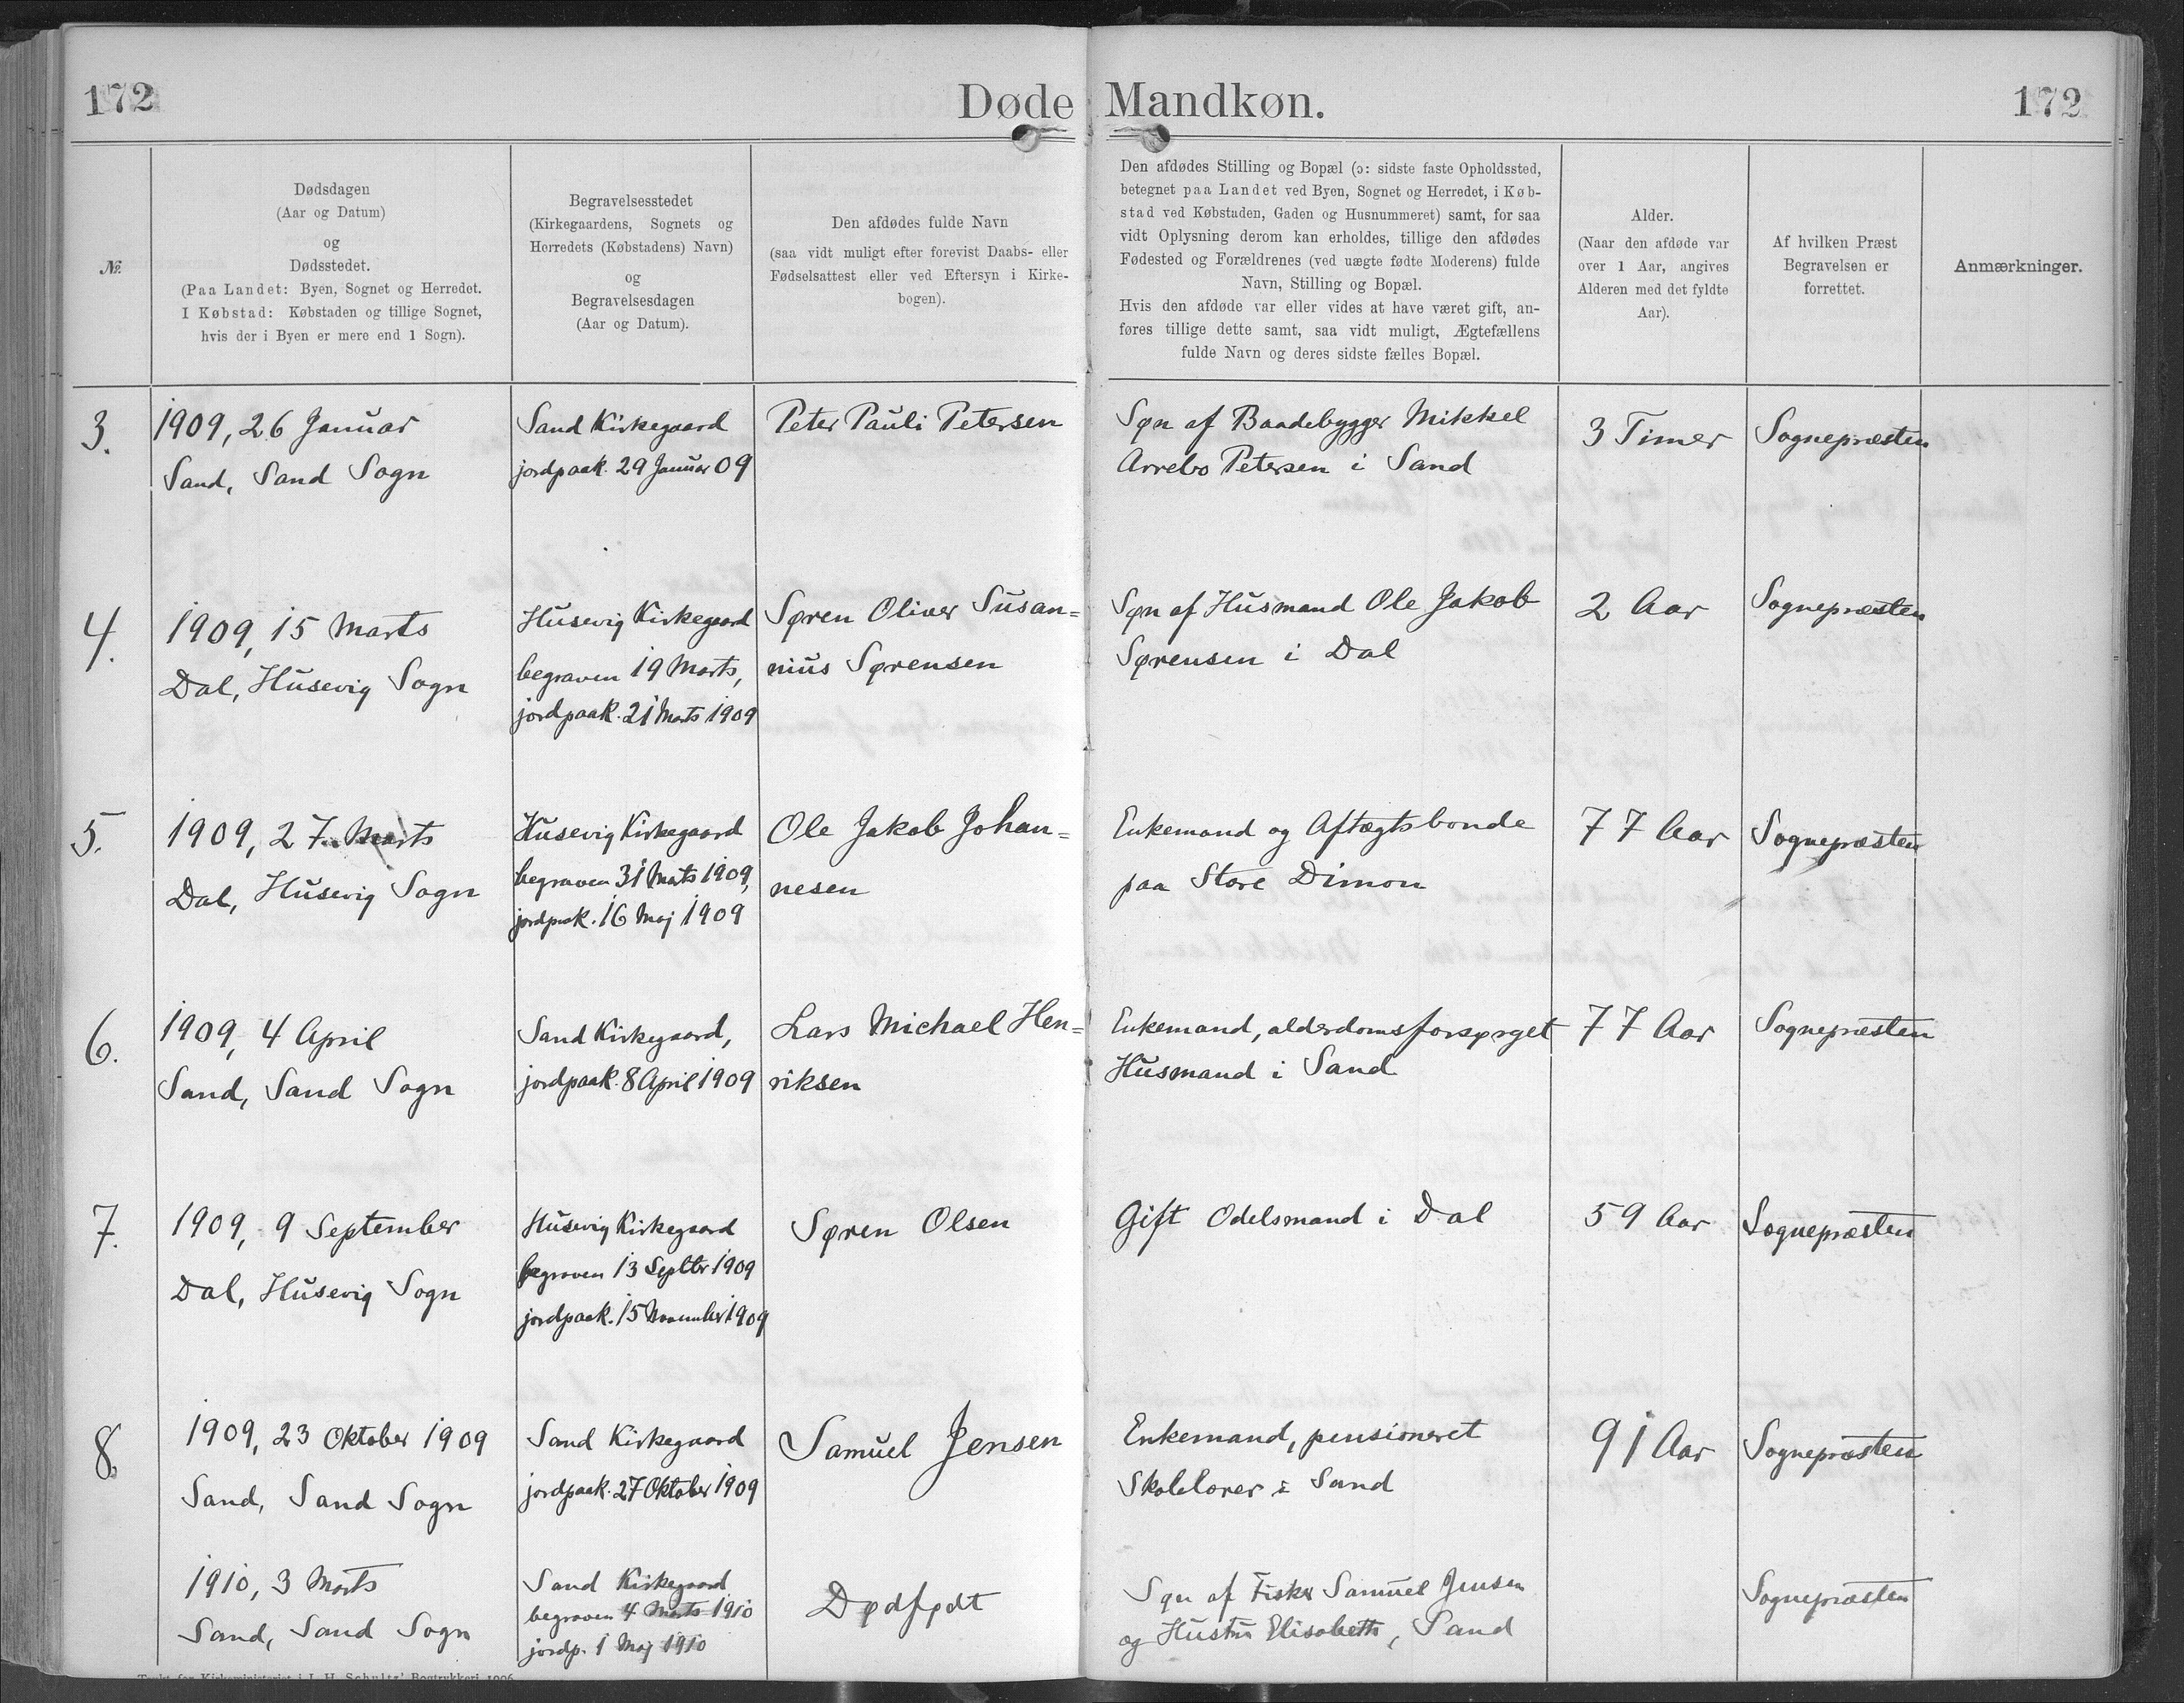 172
Døde Mandkøn.
172
№
Dødsdagen
(Aar og Datum)
og
Dødsstedet.
(Paa Landet: Byen, Sognet og Herredet.
I Købstad: Købstaden og tillige Sognet,
hvis der i Byen er mere end 1 Sogn).
Begravelsesstedet
(Kirkegaardens, Sognets og
Herredets (Købstadens) Navn)
og
Begravelsesdagen
(Aar og Datum).
Den afdødes fulde Navn
(saa vidt muligt efter forevist Daabs- eller
Fødselsattest eller ved Eftersyn i Kirke-
bogen).
Den afdødes Stilling og Bopæl (ɔ: sidste faste Opholdssted,
betegnet paa Landet ved Byen, Sognet og Herredet, i Køb-
stad ved Købstaden, Gaden og Husnummeret) samt, for saa
vidt Oplysning derom kan erholdes, tillige den afdødes
Fødested og Forældrenes (ved uægte fødte Moderens) fulde
Navn, Stilling og Bopæl.
Hvis den afdøde var eller vides at have været gift, an-
føres tillige dette samt, saa vidt muligt, Ægtefællens
fulde Navn og deres sidste fælles Bopæl.
Alder.
(Naar den afdøde var
over 1 Aar, angives
Alderen med det fyldte
Aar).
Af hvilken Præst
Begravelsen er
forrettet.
Anmærkninger.
3.
1909, 26 Januar
Sand, Sand Sogn
Sand Kirkegaard
jordpaak. 29 Januar 09
Peter Pauli Petersen
Søn af Baadebygger Mikkel
Arrebo Petersen i Sand
3 Timer
Sognepræsten
4.
1909, 15 Marts
Dal, Husevig Sogn
Husevig Kirkegaard
begraven 19 Marts,
jordpaak. 21 Marts 1909
Søren Oliver Susan=
nius Sørensen
Søn af Husmand Ole Jakob
Sørensen i Dal
2 Aar
Sognepræsten
5.
1909, 27. Marts
Dal, Husevig Sogn
Husevig Kirkegaard
begraven 31 Marts 1909,
jordpaak. 16 Maj 1909
Ole Jakob Johan=
nesen
Enkemand og Aftægtsbonde
paa Store Dimon
77 Aar
Sognepræsten
6.
1909, 4 April
Sand, Sand Sogn
Sand Kirkegaard,
jordpaak. 8 April 1909
Lars Michael Hen=
riksen
Enkemand, alderdomsforsørget
Husmand i Sand
77 Aar
Sognepræsten
7.
1909, 9 September
Dal, Husevig Sogn
Husevig Kirkegaard
begraven 13 Septbr 1909
jordpaak. 15 November 1909
Søren Olsen
Gift Odelsmand i Dal
59 Aar
Sognepræsten
8.
1909, 23 Oktober 1909
Sand, Sand Sogn
Sand Kirkegaard
jordpaak. 27 Oktober 1909
Samuel Jensen
Enkemand, pensioneret
Skolelærer i Sand
91 Aar
Sognepræsten
1910, 3 Marts
Sand, Sand Sogn
Sand Kirkegaard
begraven 4 Marts 1910
jordp. 1 Maj 1910
Dødfødt
Søn af Fisker Samuel Jensen
og Hustru Elisabeth, Sand
Sognepræsten
Trykt for Kirkeministeriet i J. H. Schultz' Bogtrykkeri 1906